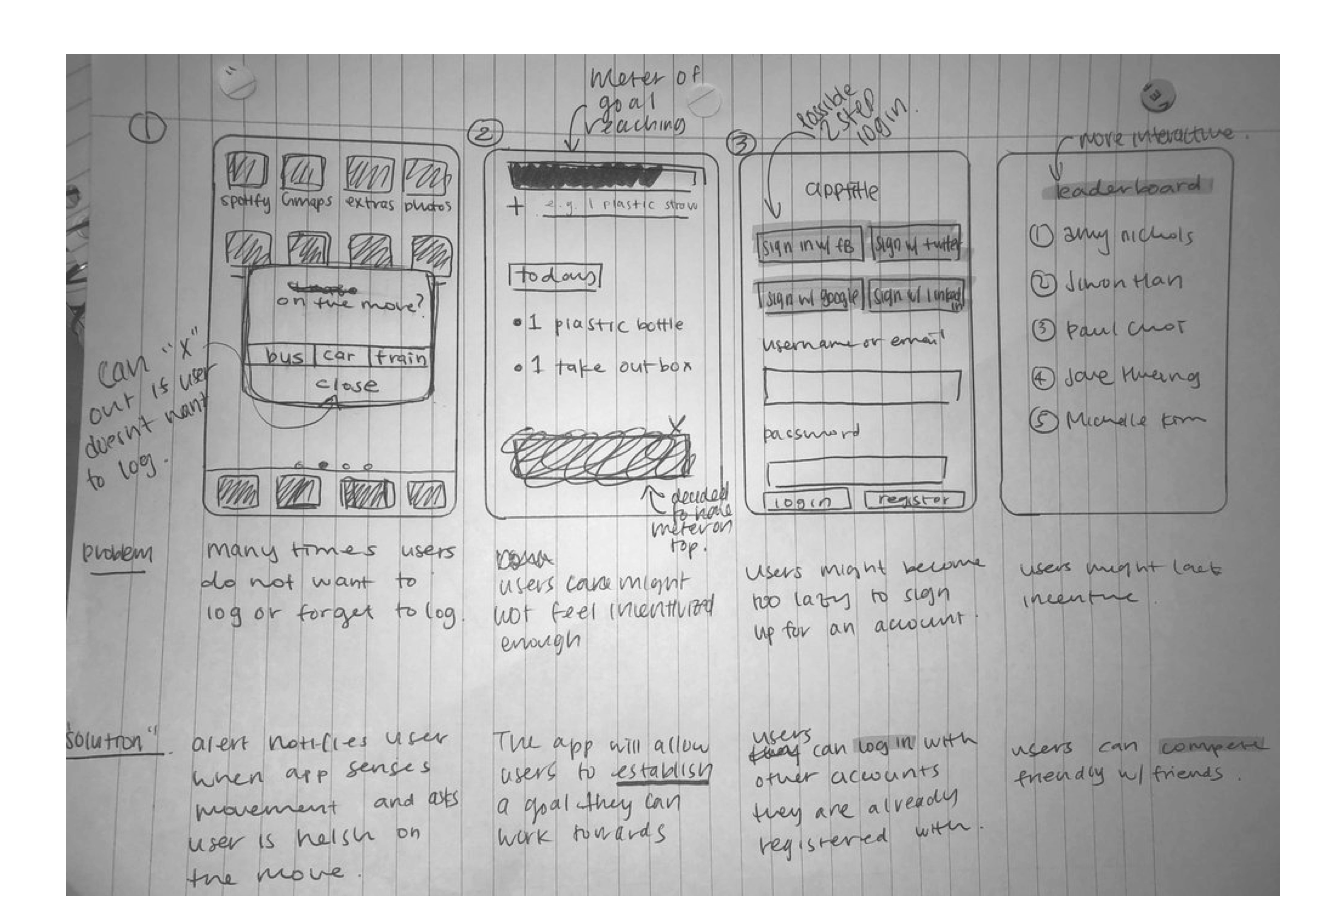 ①
spotify Gmaps extras photos
on the move?
bus car train
close
can "x"
out is user
doesnt want
to log.
②
meter of
goal
reaching
+ e.g. 1 plastic straw
todays
• 1 plastic bottle
• 1 take out box
x
decided
to have
meter on
top.
③
possible
2 step
log in.
app title
sign in w/ fB
sign w/ twitter
sign w/ google
sign w/ linked
in
username or email
password
login
register
more interactive.
leaderboard
① amy nichols
② Jiwon Han
③ paul choi
④ Jane Hwang
⑤ Michelle Kim
problem
many times users
do not want to
log or forget to log.
users might
not feel incentivized
enough
users might become
too lazy to sign
up for an account.
users might lack
incentive.
solution"
alert notifies user
when app senses
movement and asks
user is he/sh on
the move.
The app will allow
users to establish
a goal they can
work towards
users
they can log in with
other accounts
they are already
registered with.
users can compete
friendly w/ friends.